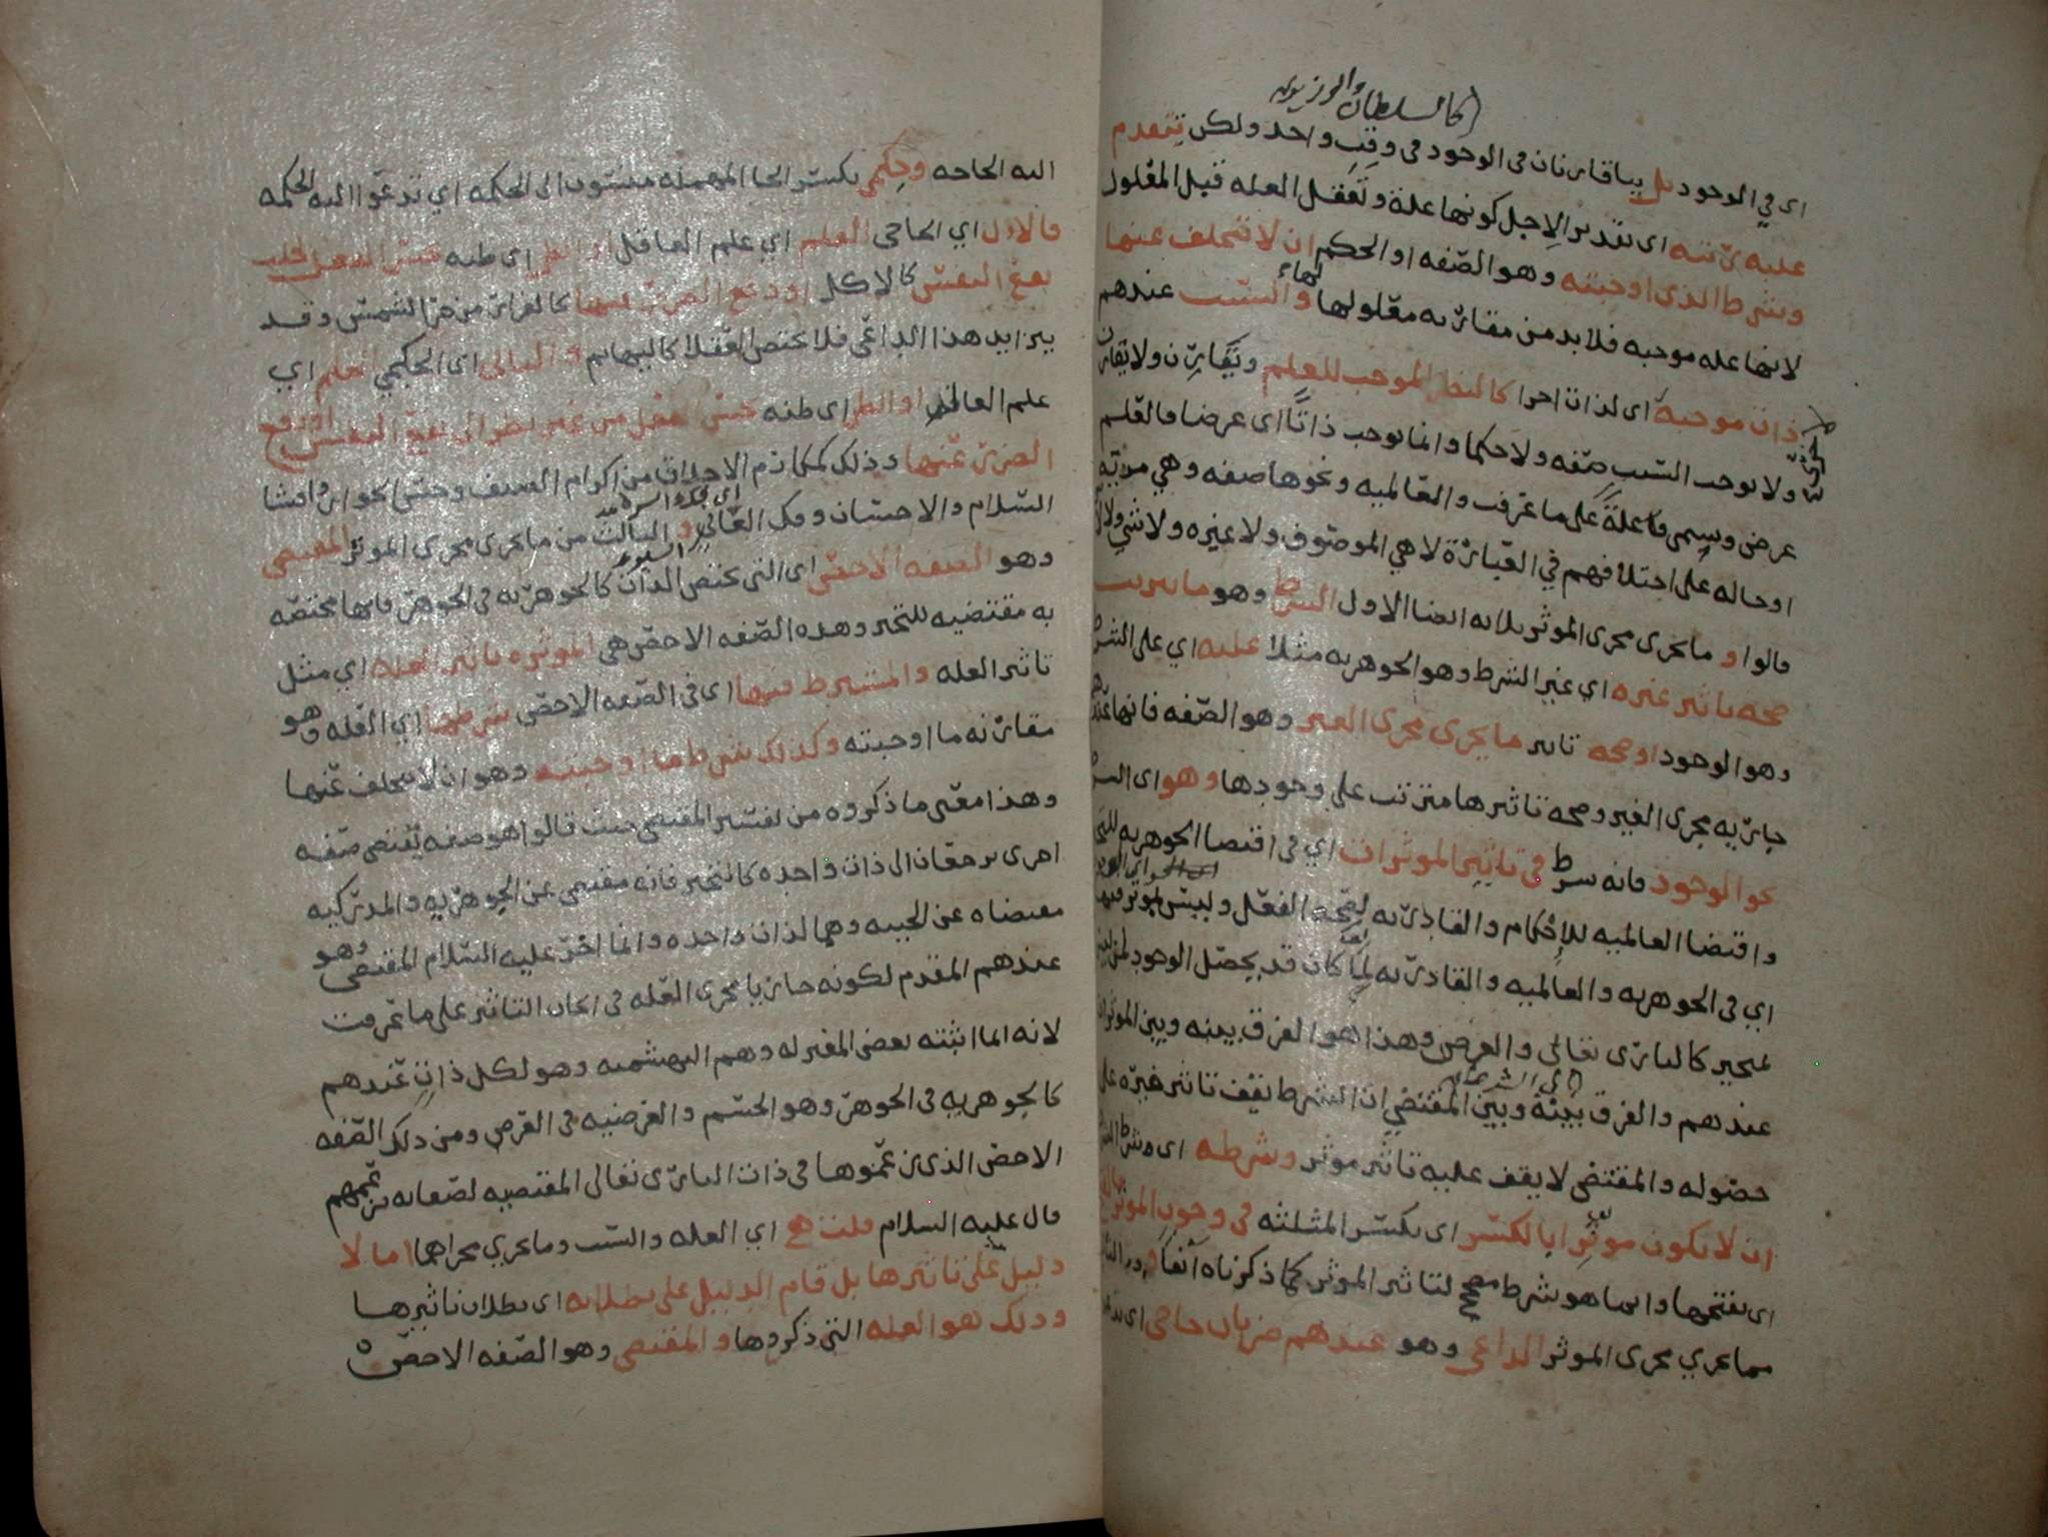 اي في الوجود بل يتقارنان في الوجود في وقت واحد ولكن تتقدم
عليه رتبة اي تقدير الاجل كونها علة وتعقل العله قبل المعلول
وشرط الذي اوجبته وهو الصفه او الحكم ان لا تتخلف عنها
لانها عله موجبه فلا بد من مقارنه معلولها لها والسبب عندهم
ذات موجبة اي لذات اخرا كالنظر الموجب للعلم ويقارن ولا يقارن
ولا يوجب السبب صفه ولا حكما وانما يوجب ذاتا اي عرضا فالعلم
عرض ويسمى فاعلة على ما عرفت والعالميه ونحوها صفه وهي مزية
او حاله على اختلافهم في العبارة لا هي الموصوف ولا غيره ولا شي ولا
قالوا و ما يجري مجرى الموثر ثلاثه ايضا الاول الشرط وهو ما يترتب
صحه تاثير غيره اي غير الشرط وهو الجوهريه مثلا عليه اي على الشرط
وهو الوجود او صحه تاثير ما يجري مجرى الغير وهو الصفه فانها عندهم
جاريه مجرى الغير وصحه تاثيرها مترتب على وجودها وهو اي الشرط
نحو الوجود فانه شرط في تاثير الموثرات اي في اقتضا الجوهريه للتحيز
واقتضا العالميه للإحكام والقادريه لصحة الفعل وليس بموثر فيها
اي في الجوهريه والعالميه والقادريه لما كان قد يحصل الوجود لمن ليس
بمتحيز كالباري تعالى والعرض وهذا هو الفرق بينه وبين الموثرات
عندهم والفرق بينه وبين المقتضي ان الشرط يقف تاثير غيره على
حصوله والمقتضى لا يقف عليه تاثير موثر وشرطه اي وشرط الشرط
ان لا يكون موثرا بالكسر اي بكسر المثلثه في وجود الموثر
اي بفتحها وانما هو شرط مصحح لتاثير الموثر كما ذكرناه آنفا و الثاني
مما يجري مجرى الموثر الداعي وهو عندهم ضربان حاجي اي تدعو
اليه الحاجه وحكمي بكسر الحا المهمله منسوب الى الحكمه اي تدعوا اليه الحكمه
فالاول اي الحاجي العلم اي علم العاقل او الظن اي ظنه حسن الفعل لجلب
نفع النفس كالاكل او دفع الضرر عنها كالفرار من حر الشمس وقد
يزايد هذا الداعي فلا يختص العقلا كالبهايم و الثاني اي الحكمي العلم اي
علم العاقل او الظن اي ظنه حسن الفعل من غير نظر الى نفع النفس او دفع
الضرر عنها وذلك كمكارم الاخلاق من اكرام الضيف وحسن الجوار وافشا
السلام والاحسان وفك العاني و الثالث من ما يجري مجرى الموثر المقتضي
وهو الصفه الاخص اي التي تختص الذات كالجوهريه في الجوهر فانها مختصه
به مقتضيه للتحيز وهذه الصفه الاخص هي الموثره تاثير العله اي مثل
تاثير العله والمشترط فيها اي في الصفه الاخص شرطها اي العله وهو
مقارنه ما اوجبته وكذلك شرط ما اوجبته وهو ان لا يتخلف عنها
وهذا معنى ما ذكروه من تفسير المقتضي حيث قالوا هو صفه تقتضي صفه
اخرى يرجعان الى ذات واحده كالتحيز فانه مقتضى عن الجوهريه والمدركيه
مقتضاه عن الحييه وهما لذات واحده وانما اخر عليه السلام المقتضي وهو
عندهم المقدم لكونه جاريا مجرى العله في ايجاب التاثير على ما عرفت
لانه انما اثبته بعض المعتزله وهم البهشميه وهو لكل ذات عندهم
كالجوهريه في الجوهر وهو الجسم والعرضيه في العرض ومن ذلك الصفه
الاخص الذي زعموها في ذات الباري تعالى المقتضيه لصفاته بزعمهم
قال عليه السلام قلت هي اي العله والسبب وما يجري مجراهما اما لا
دليل على تاثيرها بل قام الدليل على بطلانه اي بطلان تاثيرها
وذلك هو العله التي ذكروها والمقتضي وهو الصفه الاخص